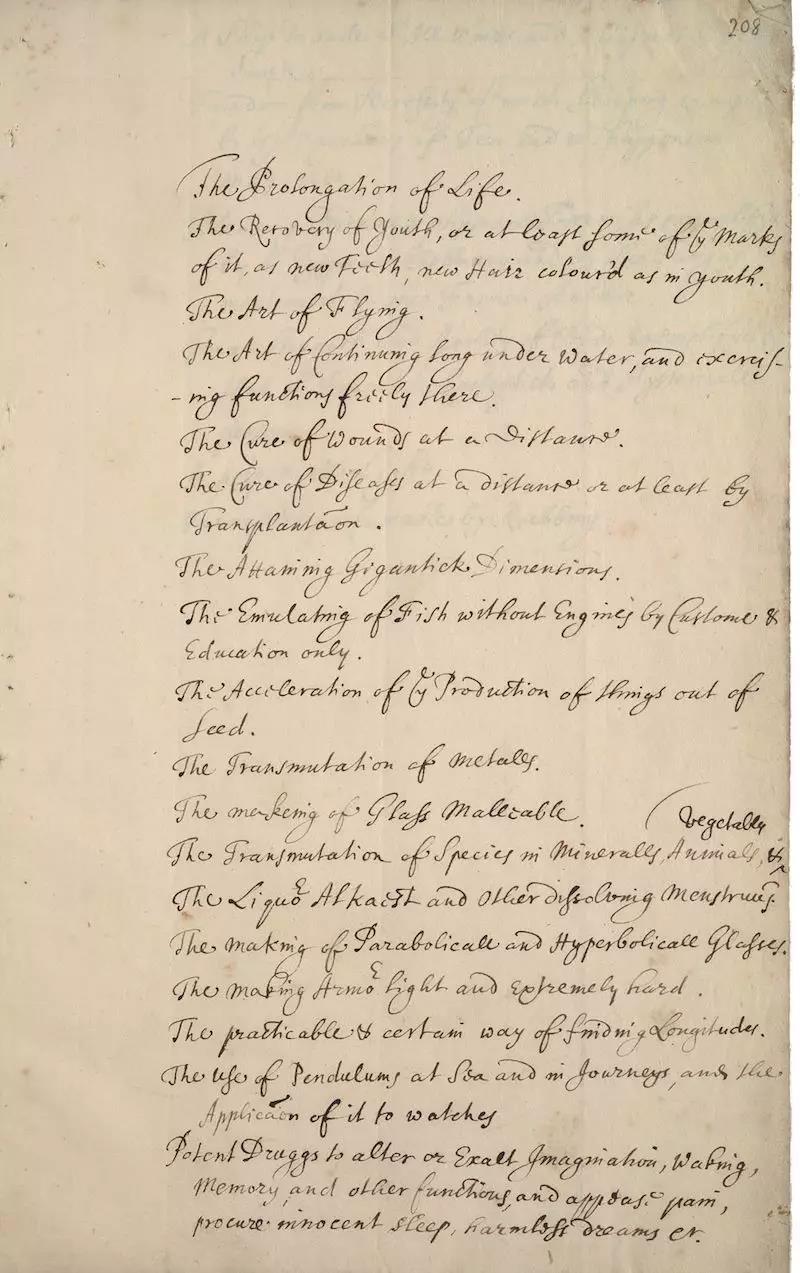 208
The Prolongation of Life.
The Recovery of Youth, or at least some of ye Marks
of it, as new Teeth, new Hair colour'd as in youth.
The Art of Flying.
The Art of Continuing long under Water, and exercis-
-ing functions freely there.
The Cure of Wounds at a Distance.
The Cure of Diseases at a distance or at least by
Transplantaõn.
The Attaining Gigantick Dimensions.
The Emulating of Fish without Engines by Custome &
Education only.
The Acceleration of ye Production of things out of
Seed.
The Transmutation of Metalls.
The makeing of Glass Malleable.
Vegetalls
The Transmutation of Species in Mineralls, Animals, &
The Liquor Alkaest and Other dissolving Menstruums.
The making of Parabolicall and Hyperbolicall Glasses.
The making Armor light and extremely hard.
The practicable & certain way of finding Longitudes.
The use of Pendulums at Sea and in Journeys, and the
Applicaõn of it to watches
Potent Druggs to alter or Exalt Imagination, Waking,
Memory, and other functions, and appease pain,
procure innocent sleep, harmless dreams etc.